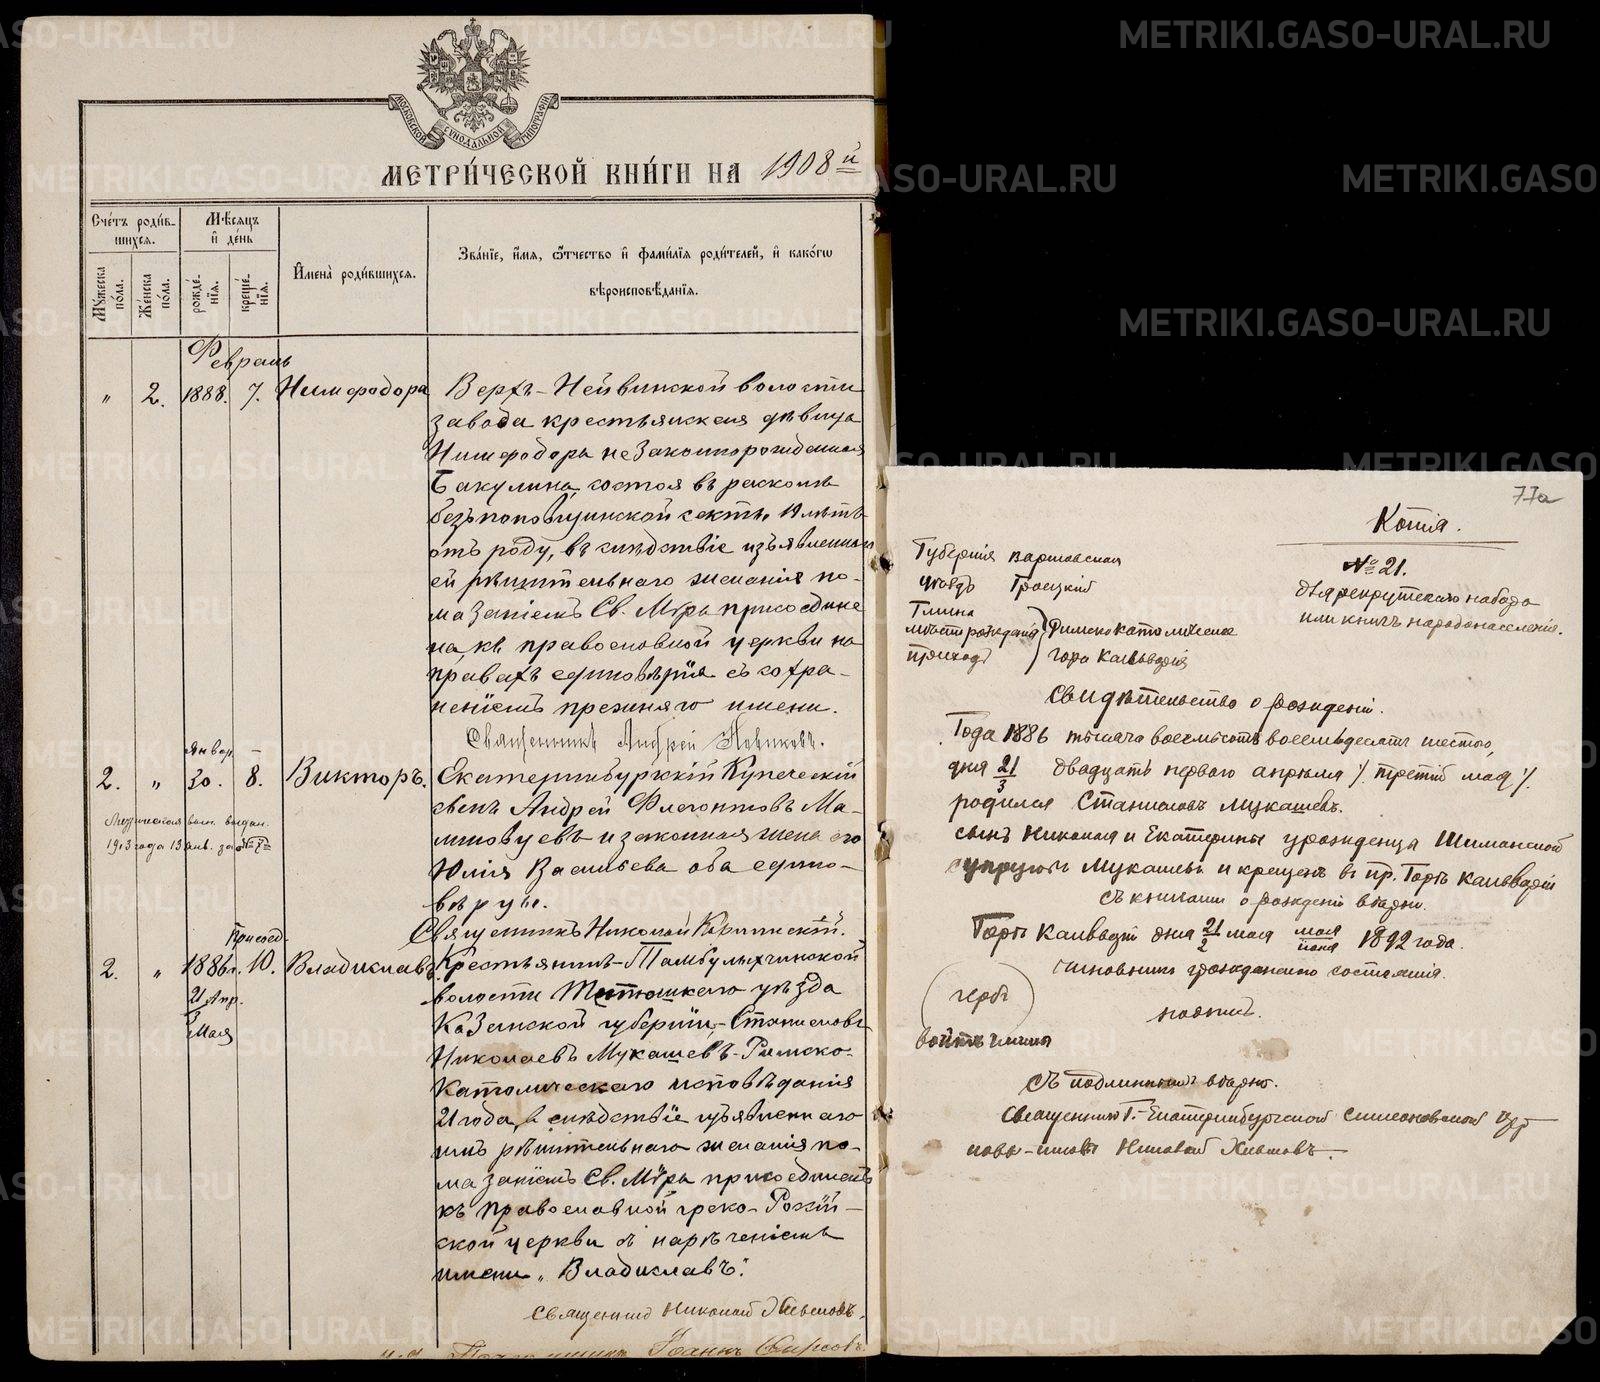 МОСКОВСКОЙ СѴНОДАЛЬНОЙ ТИПОГРАФІИ
МЕТРИ́ЧЕСКОЙ КНИ́ГИ НА 1908 й
Сче́тъ роди́в-
шихся.
Мꙋ́жеска по́ла.
Же́нска по́ла.
Мѣ́сяцъ
и҆ де́нь
рожде́-
нїя.
креще́-
нїя.
И҆мена̀ роди́вшихся.
Зва́нїе, и҆́мя, ѻ҆́тчество и҆ фами́лїя роди́телей, и҆ како́гѡ
вѣроисповѣ́данїя.
Февраль
„ 2. 1888. 7. Нимфодора
Верхъ-Нейвинской волости
завода крестьянская дѣвица
Нимфодора незаконнорожденная
Бакулина, состоя въ расколѣ
безпоповщинской секты, 19 лѣтъ
отъ роду, въ слѣдствіе изъявленнаго
ей рѣшительнаго желанія по-
мазаніемъ Св. Мѵра присоедине
на къ православной церкви на
правахъ единовѣрія съ сохра-
неніемъ прежняго имени.
Священникъ Андрей Новиковъ.
Январ.
2. „ 30. 8. Викторъ.
Екатеринбургскій Купеческій
сынъ Андрей Флегонтовъ Ма-
линовцевъ и законная жена его
Юлія Васильева оба едино-
вѣрцы.
Священникъ Николай
1913 года 13 янв. за №
Присоед.
2. „ 1886 г. 10. Владиславъ.
21 Апр.
3
Мая
Крестьянинъ Тамбулыхчинской
волости Тетюшскаго уѣзда
Казанской губерніи, Станиславъ
Николаевъ Мукашевъ Римско-
Католическаго исповѣданія
21 года, въ слѣдствіе изъявленнаго
имъ рѣшительнаго желанія по-
мазаніемъ Св. Мѵра присоединенъ
къ православной греко-Россій-
ской церкви съ нареченіемъ
имени „Владиславъ".
Священник Николай
Іоаннъ
77а
Копія.
№ 21.
для рекрутскаго набора
или книгъ народонаселенія.
Губернія Варшавская
уѣздъ Гроецкій
Гмина
мѣсто рожденія Римско Католическое
приходъ гора Кальварія
Свидѣтельство о рожденіи.
Года 1886 тысяча восемьсотъ восемьдесятъ шестого,
дня 21/3 двадцать перваго апрѣля /. третій мая /.
родился Станиславъ Мукашевъ.
сынъ Николая и Екатерины урожденца Шиманской
супруговъ Мукашевъ и крещенъ въ пр. Горѣ Кальваріи
съ книгами о рожденіи вѣрно.
Гора Кальварія дня 21/2 мая мая/іюня 1892 года.
чиновникъ гражданскаго состоянія.
гербъ
подпись.
войтъ гмины
Съ подлиннымъ вѣрно.
Священникъ Г. Екатеринбургской Симеоновской
Николай
METRIKI.GASO-URAL.RU